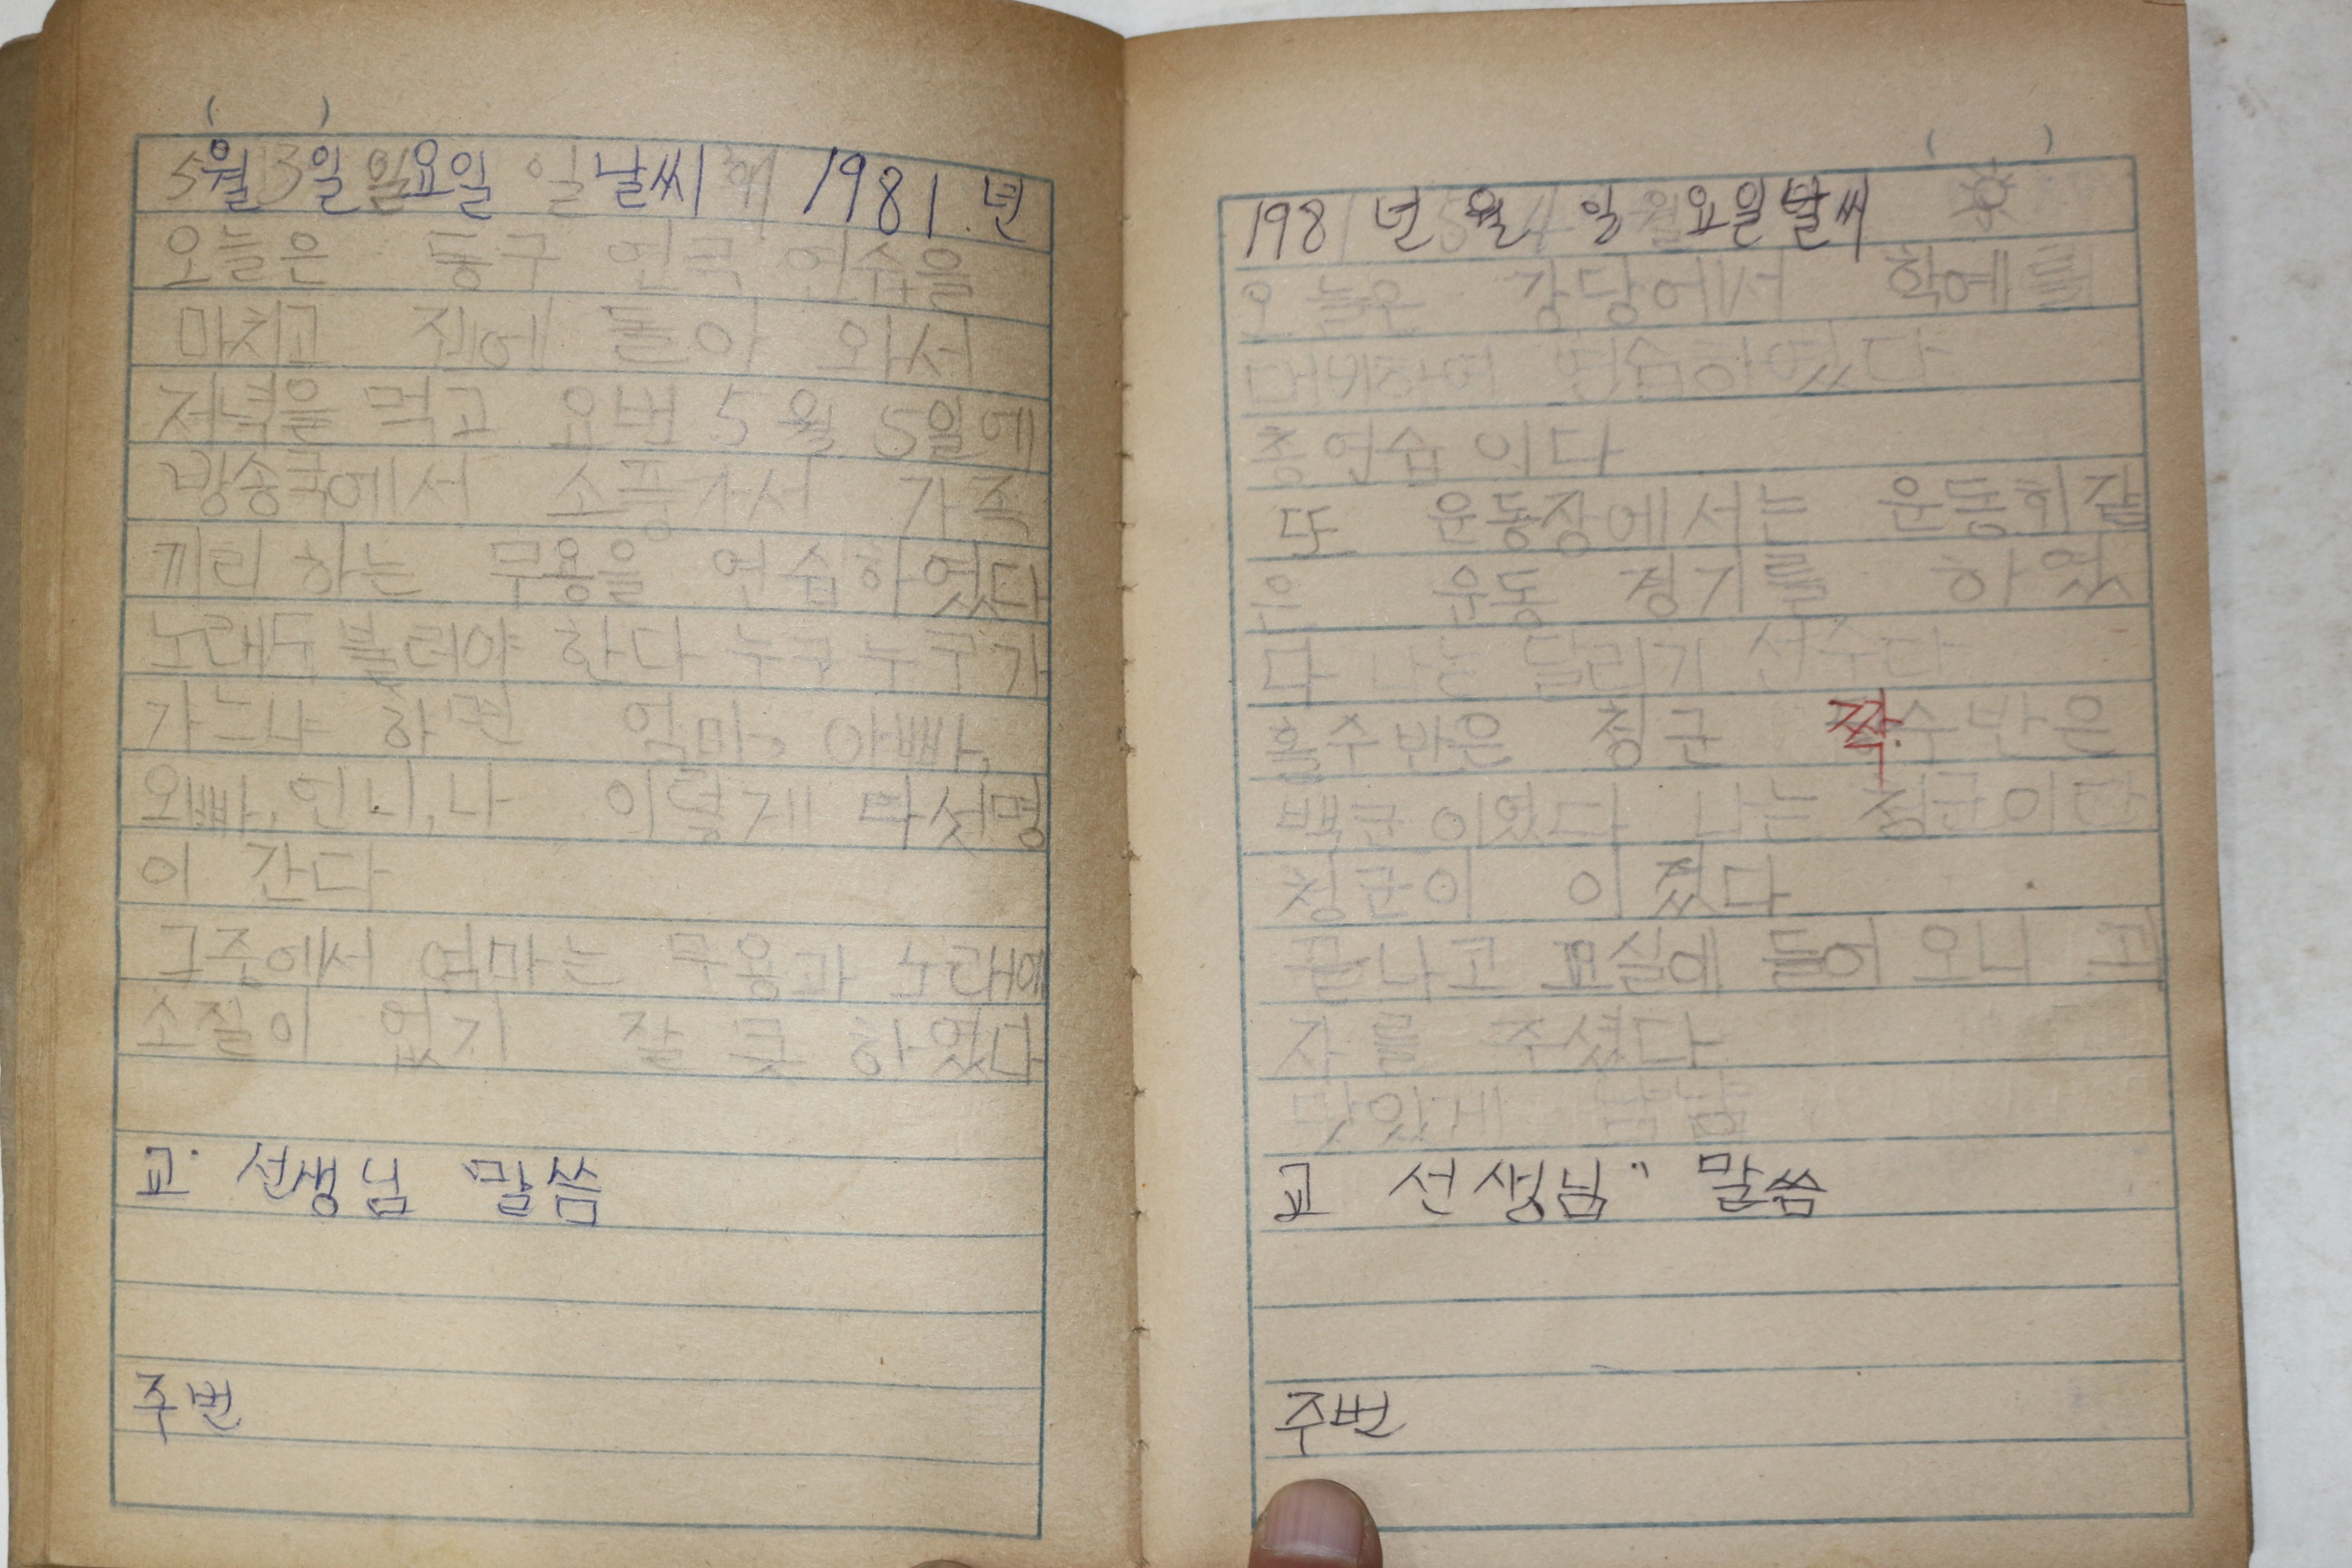 5월 3일 일요일 일 날씨 해 1981.년
오늘은 동구 연극 연습을
마치고 집에 돌아 와서
저녁을 먹고 요번 5월 5일에
방송국에서 소풍가서 가족
끼리 하는 무용을 연습하였다
노래도 불러야 한다 누구누구가
가느냐 하면 엄마, 아빠,
오빠, 언니, 나 이렇게 다섯명
이 간다
그중에서 엄마는 무용과 노래에
소질이 없기 잘 못 하였다
교 선생님 말씀
주번
( )
1981년 5월 4일 월요일 날씨
오늘은 강당에서 학예를
대비하여 연습하였다
총연습 이다
또 운동장에서는 운동회같
은 운동 경기를 하였
다 나는 달리기 선수다
홀수반은 청군 짝수반은
백군이었다 나는 청군이다
청군이 이겼다
끝나고 교실에 들어 오니 과
자를 주셨다
맛있게 냠냠
교 선생님" 말씀
주번